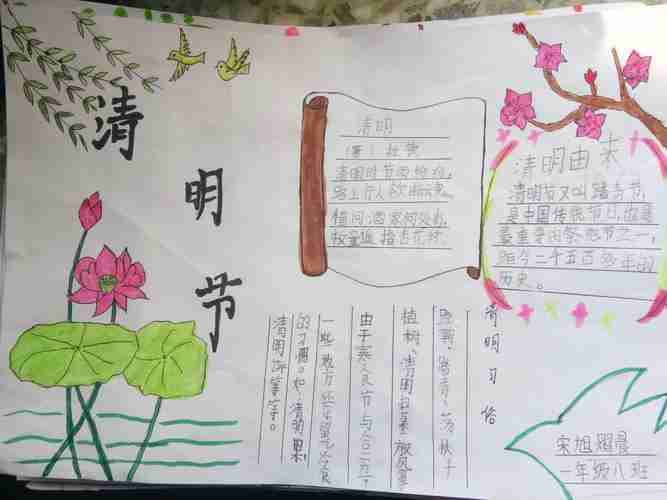 清明节
清明
(唐) 杜牧
清明时节雨纷纷,
路上行人欲断魂。
借问酒家何处有,
牧童遥指杏花村。
清明由来
清明节又叫踏青节,
是中国传统节日,也是
最重要的祭祀节之一,
距今二千五百多年的
历史。
清明习俗
踏青、荡秋千
植树、清明扫墓、放风筝
由于寒食节与合二为一
一些地方还保留吃冷食
的习惯。如:清明果、
清明 等等。
宋旭
一年级八班